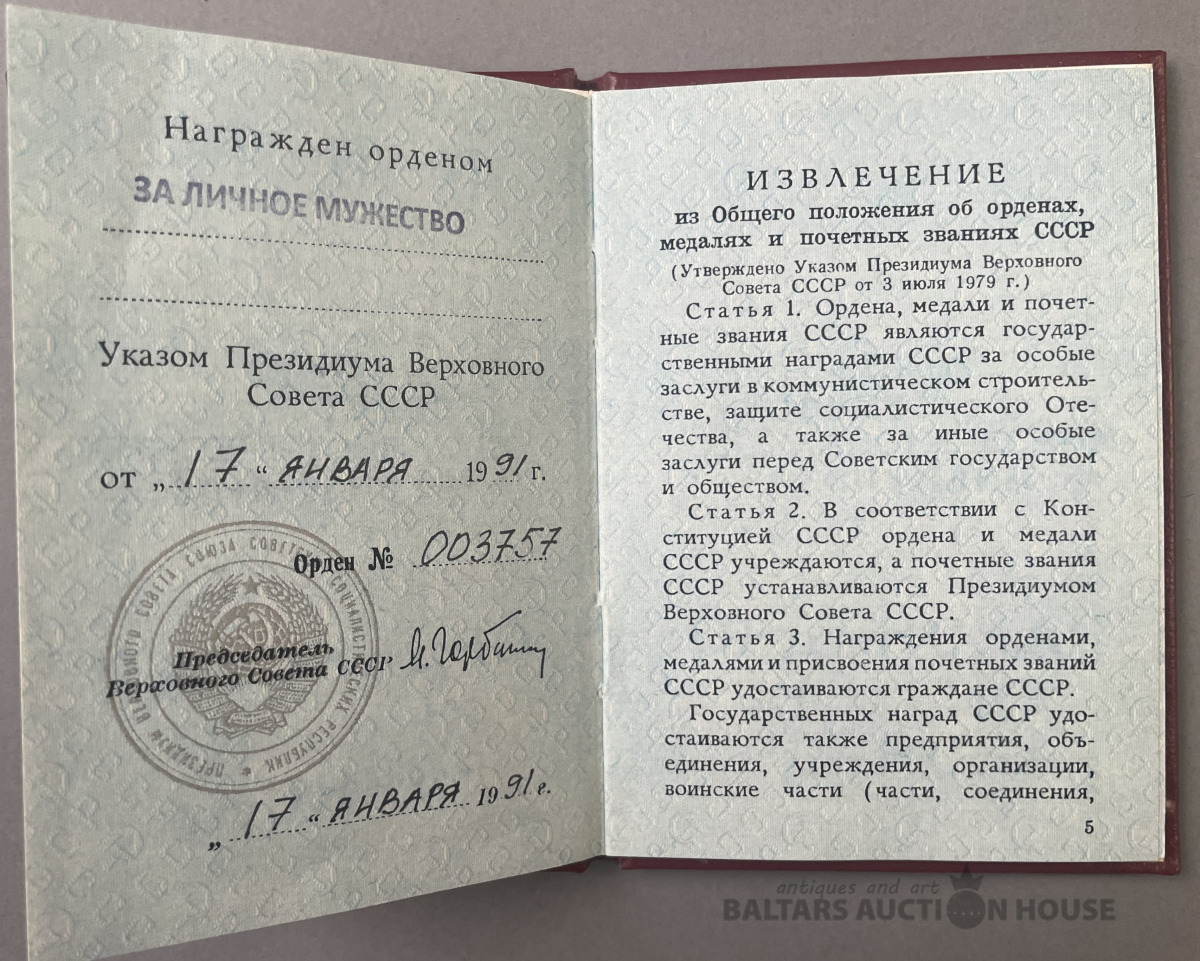 Награжден орденом
ЗА ЛИЧНОЕ МУЖЕСТВО
Указом Президиума Верховного
Совета СССР
от „17“ ЯНВАРЯ 1991 г.
Орден № 003757
ПРЕЗИДИУМ ВЕРХОВНОГО СОВЕТА СОЮЗА СОВЕТСКИХ СОЦИАЛИСТИЧЕСКИХ РЕСПУБЛИК *
Председатель
Верховного Совета СССР М. Горбачев
„17“ ЯНВАРЯ 1991 г.
ИЗВЛЕЧЕНИЕ
из Общего положения об орденах,
медалях и почетных званиях СССР
(Утверждено Указом Президиума Верховного
Совета СССР от 3 июля 1979 г.)
Статья 1. Ордена, медали и почет-
ные звания СССР являются государ-
ственными наградами СССР за особые
заслуги в коммунистическом строитель-
стве, защите социалистического Оте-
чества, а также за иные особые
заслуги перед Советским государством
и обществом.
Статья 2. В соответствии с Кон-
ституцией СССР ордена и медали
СССР учреждаются, а почетные звания
СССР устанавливаются Президиумом
Верховного Совета СССР.
Статья 3. Награждения орденами,
медалями и присвоения почетных званий
СССР удостаиваются граждане СССР.
Государственных наград СССР удо-
стаиваются также предприятия, объ-
единения, учреждения, организации,
воинские части (части, соединения,
5
antiques and art
BALTARS AUCTION HOUSE